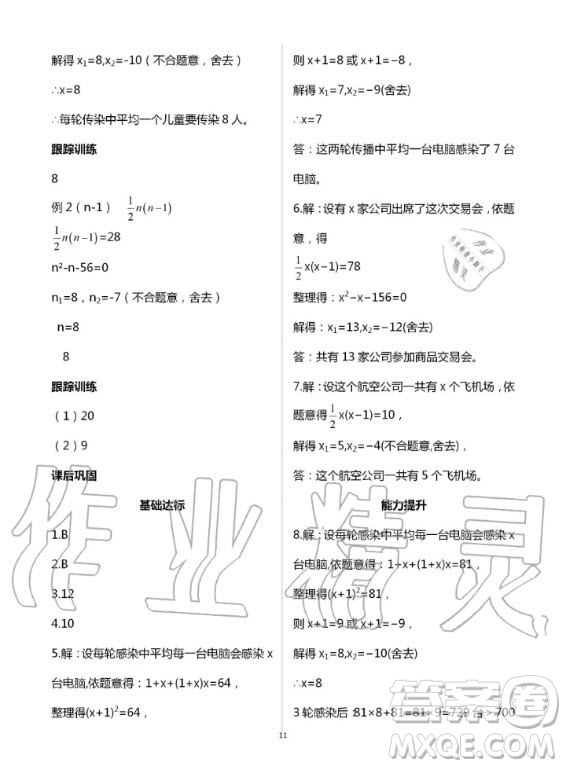 解得 x₁=8,x₂=-10（不合题意，舍去）
∴x=8
∴每轮传染中平均一个儿童要传染 8 人。
跟踪训练
8
例 2（n-1） 1/2 n(n−1)
1/2 n(n−1)=28
n²-n-56=0
n₁=8，n₂=-7（不合题意，舍去）
n=8
8
跟踪训练
（1）20
（2）9
课后巩固
基础达标
1.B
2.B
3.12
4.10
5.解：设每轮感染中平均每一台电脑会感染 x
台电脑,依题意得：1+x+(1+x)x=64，
整理得(x+1)²=64，
则 x+1=8 或 x+1=−8，
解得 x₁=7,x₂=−9(舍去)
∴x=7
答：这两轮传播中平均一台电脑感染了 7 台
电脑。
6.解：设有 x 家公司出席了这次交易会,依题
意，得
1/2 x(x−1)=78
整理得：x²−x−156=0
解得：x₁=13,x₂=−12(舍去)
答：共有 13 家公司参加商品交易会。
7.解：设这个航空公司一共有 x 个飞机场，依
题意得 1/2 x(x−1)=10，
解得 x₁=5,x₂=−4(不合题意,舍去)，
答：这个航空公司一共有 5 个飞机场。
能力提升
8.解：设每轮感染中平均每一台电脑会感染 x
台电脑,依题意得：1+x+(1+x)x=81，
整理得(x+1)²=81，
则 x+1=9 或 x+1=−9，
解得 x₁=8,x₂=−10(舍去)
∴x=8
3 轮感染后：81×8+81=81×9=729 台>700
11
作业精灵
答案圈
MXQE.COM